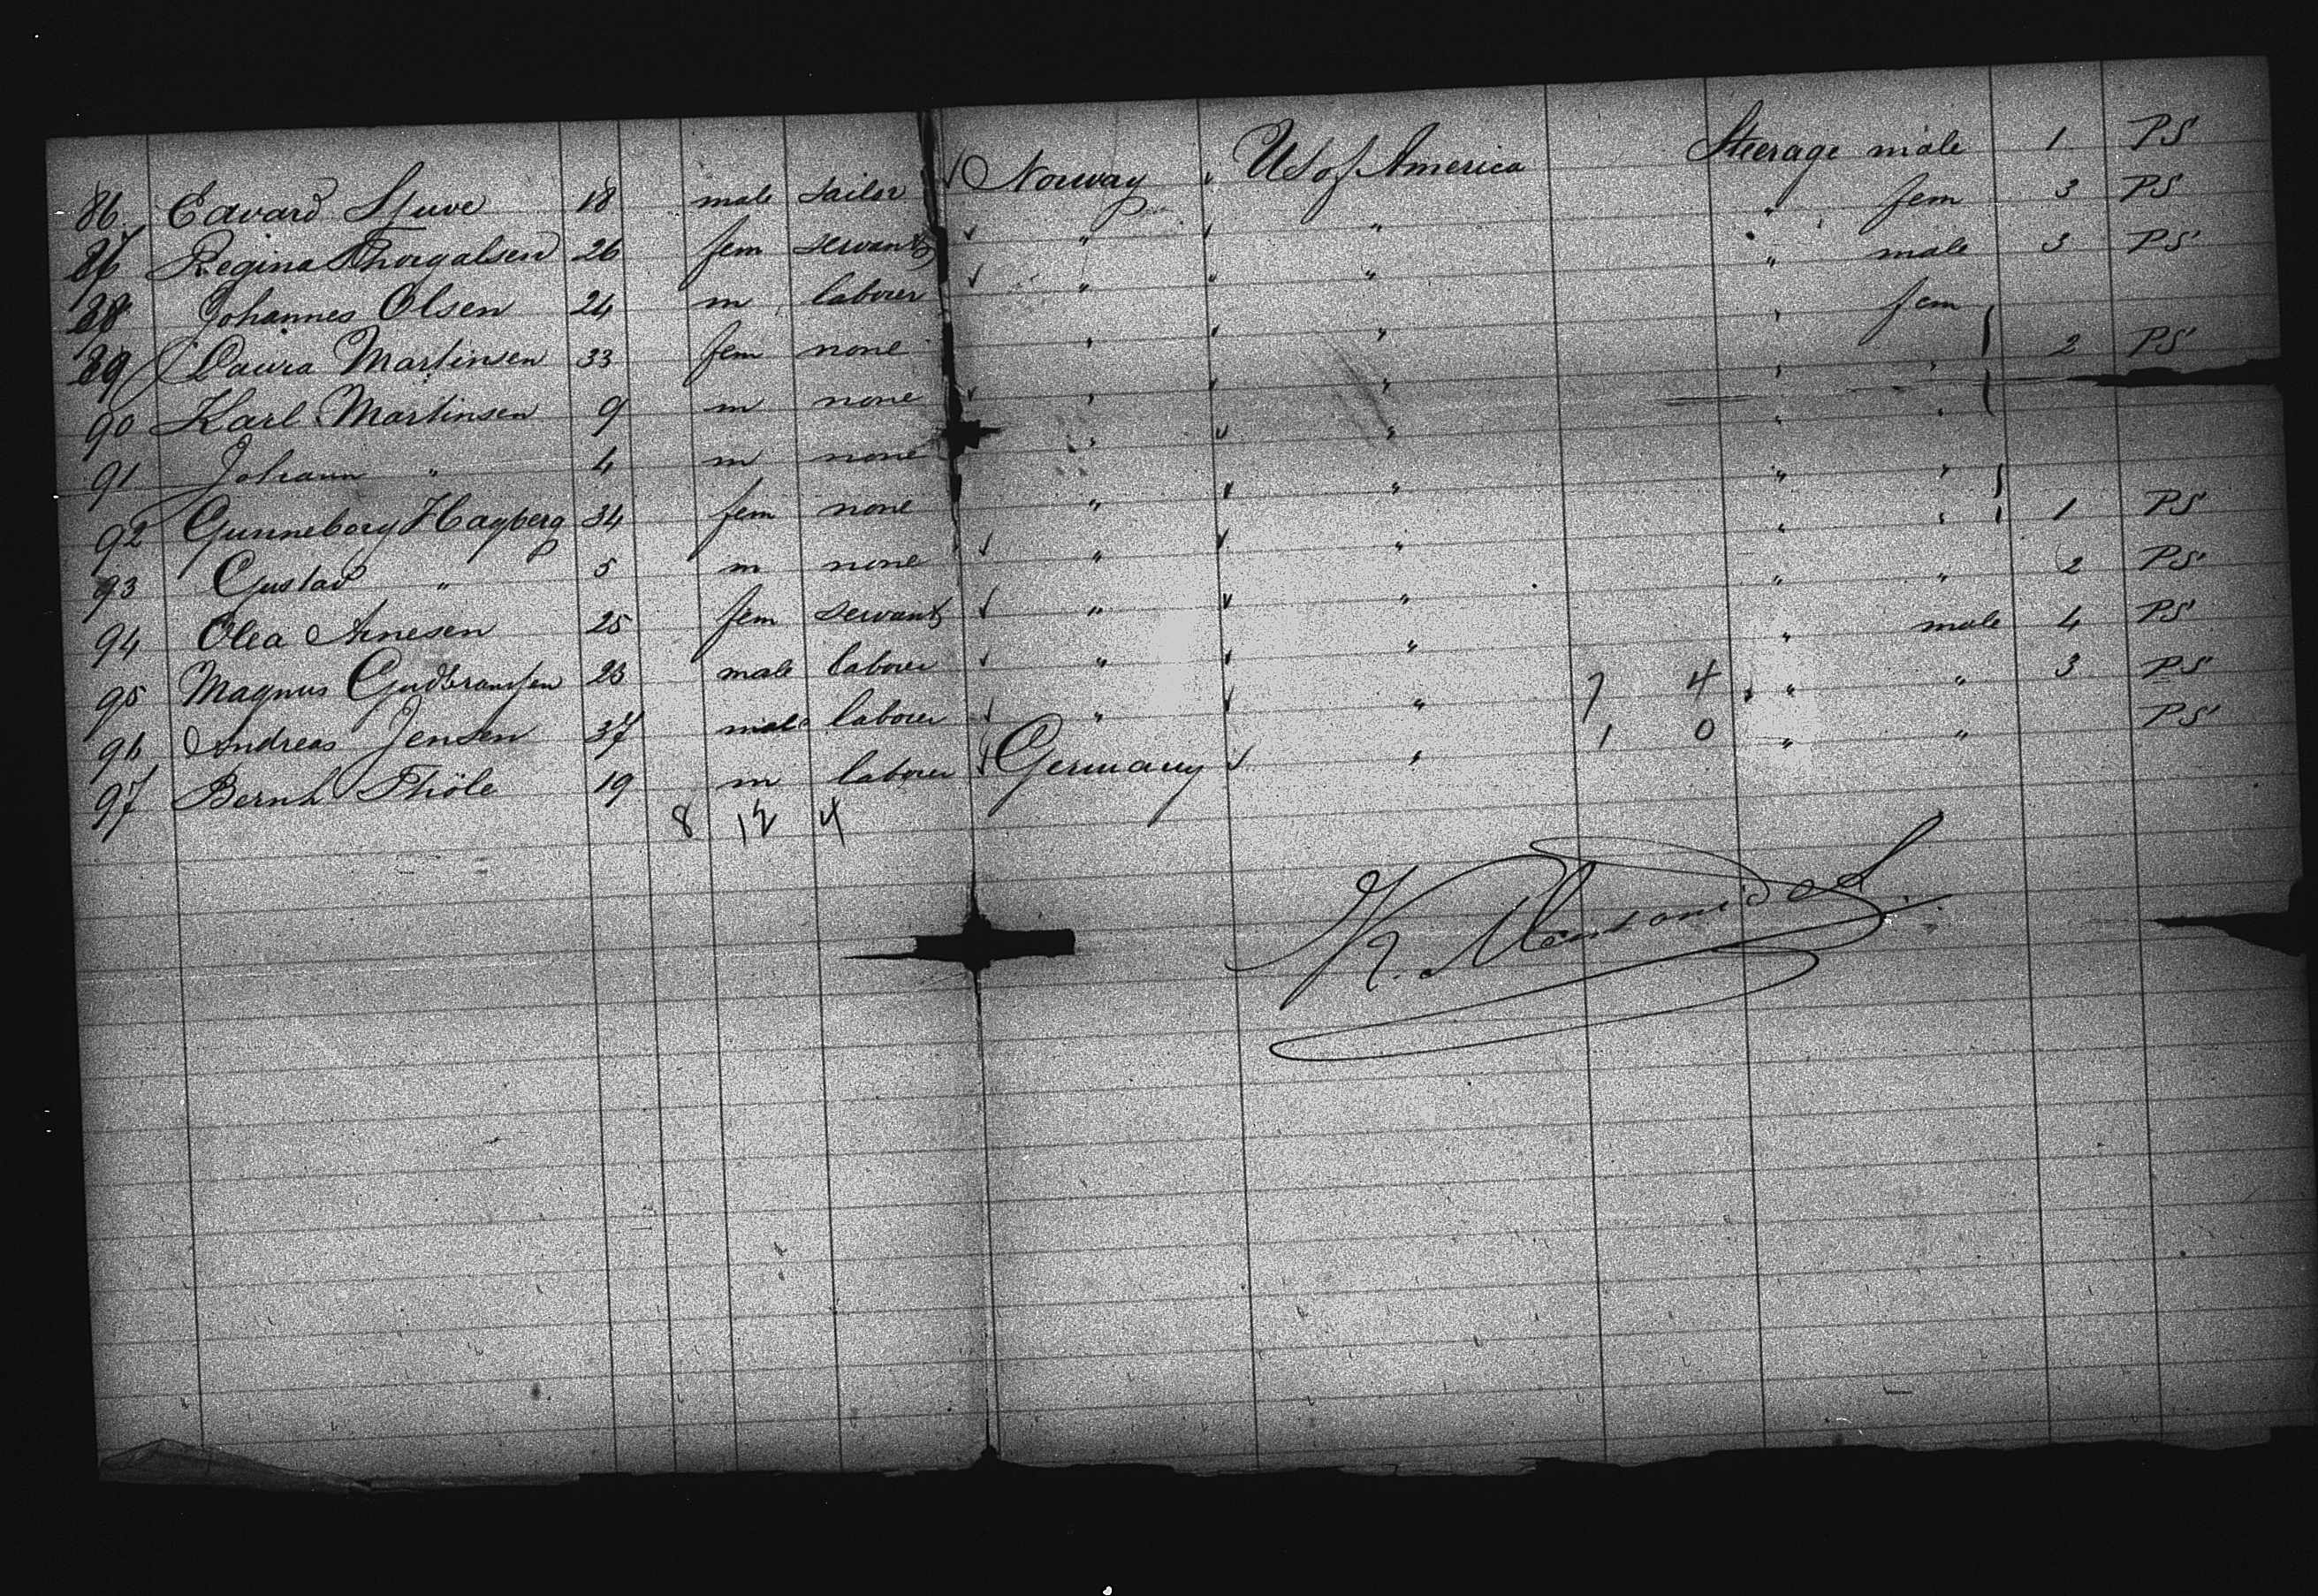 86 Edvard Stuve 18 male sailor Norway US of America Steerage male 1 PS
87 Regina Thorgalsen 26 fem servant " " " fem 3 PS
88 Johannes Olsen 24 m labourer " " " male 3 PS
89 Laura Martinsen 33 fem none " " " fem
90 Karl Martinsen 9 m none " " " " 2 PS
91 Johann " 4 m none " " " "
92 Gunneborg Hagberg 34 fem none " " " "
93 Gustav " 5 m none " " " " 1 PS
94 Olea Arnesen 25 fem servant " " " " 2 PS
95 Magnus Gudbransen 23 male labourer " " " male 4 PS
96 Andreas Jensen 37 male labourer " " 7 4 " " 3 PS
97 Bernh Thöle 19 m labourer Germany " 1 0 " " PS
8 12 4